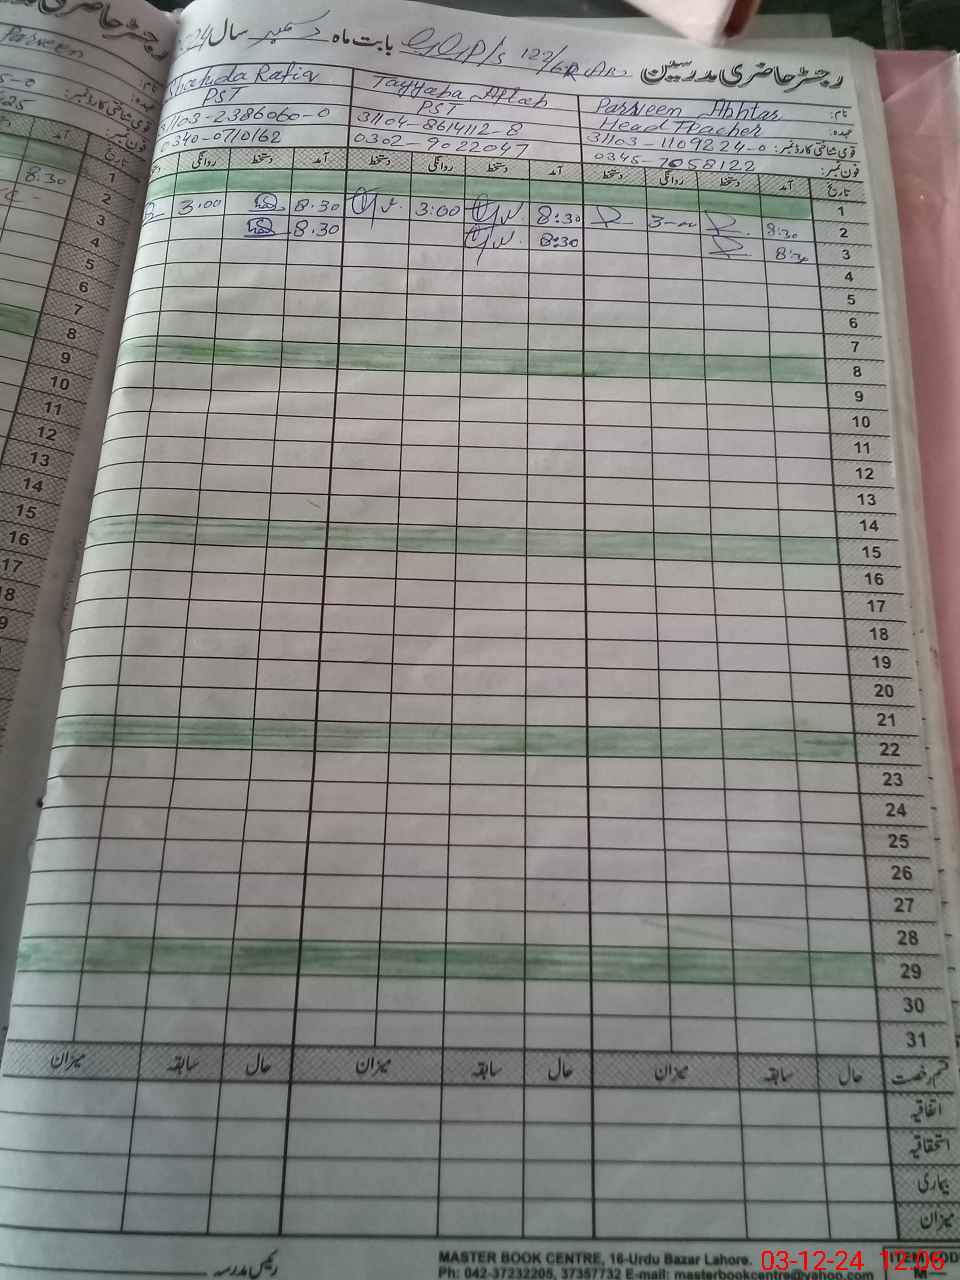 رجسٹر حاضری مدرسین GGP/S 122/6R بابت ماہ دسمبر سال 2024
نام: Parveen Akhtar Tayyaba Aftab Shahida Rafiq
عہدہ: Head Teacher PST PST
قومی شناختی کارڈ نمبر: 31103-1109224-0 31104-8614112-8 31103-2386060-0
فون نمبر: 0345-7058122 0302-9022047 0340-0710162
تاریخ آمد دستخط روانگی دستخط آمد دستخط روانگی دستخط آمد دستخط روانگی دستخط
1
2 8:30 3-00 8:30 3:00 8.30 3.00
3 8:30 8:30 8.30
4
5
6
7
8
9
10
11
12
13
14
15
16
17
18
19
20
21
22
23
24
25
26
27
28
29
30
31
قسم رخصت حال سابقہ میزان حال سابقہ میزان حال سابقہ میزان
اتفاقیہ
استحقاقیہ
بیماری
میزان
رئیس مدرسہ
MASTER BOOK CENTRE, 16-Urdu Bazar Lahore.
Ph: 042-37232205, 37357732 E-mail: masterbookcentre@yahoo.com
03-12-24 12:06
Parveen
آمد
تاریخ
8:30
1
2
3
4
5
6
7
8
9
10
11
12
13
14
15
16
17